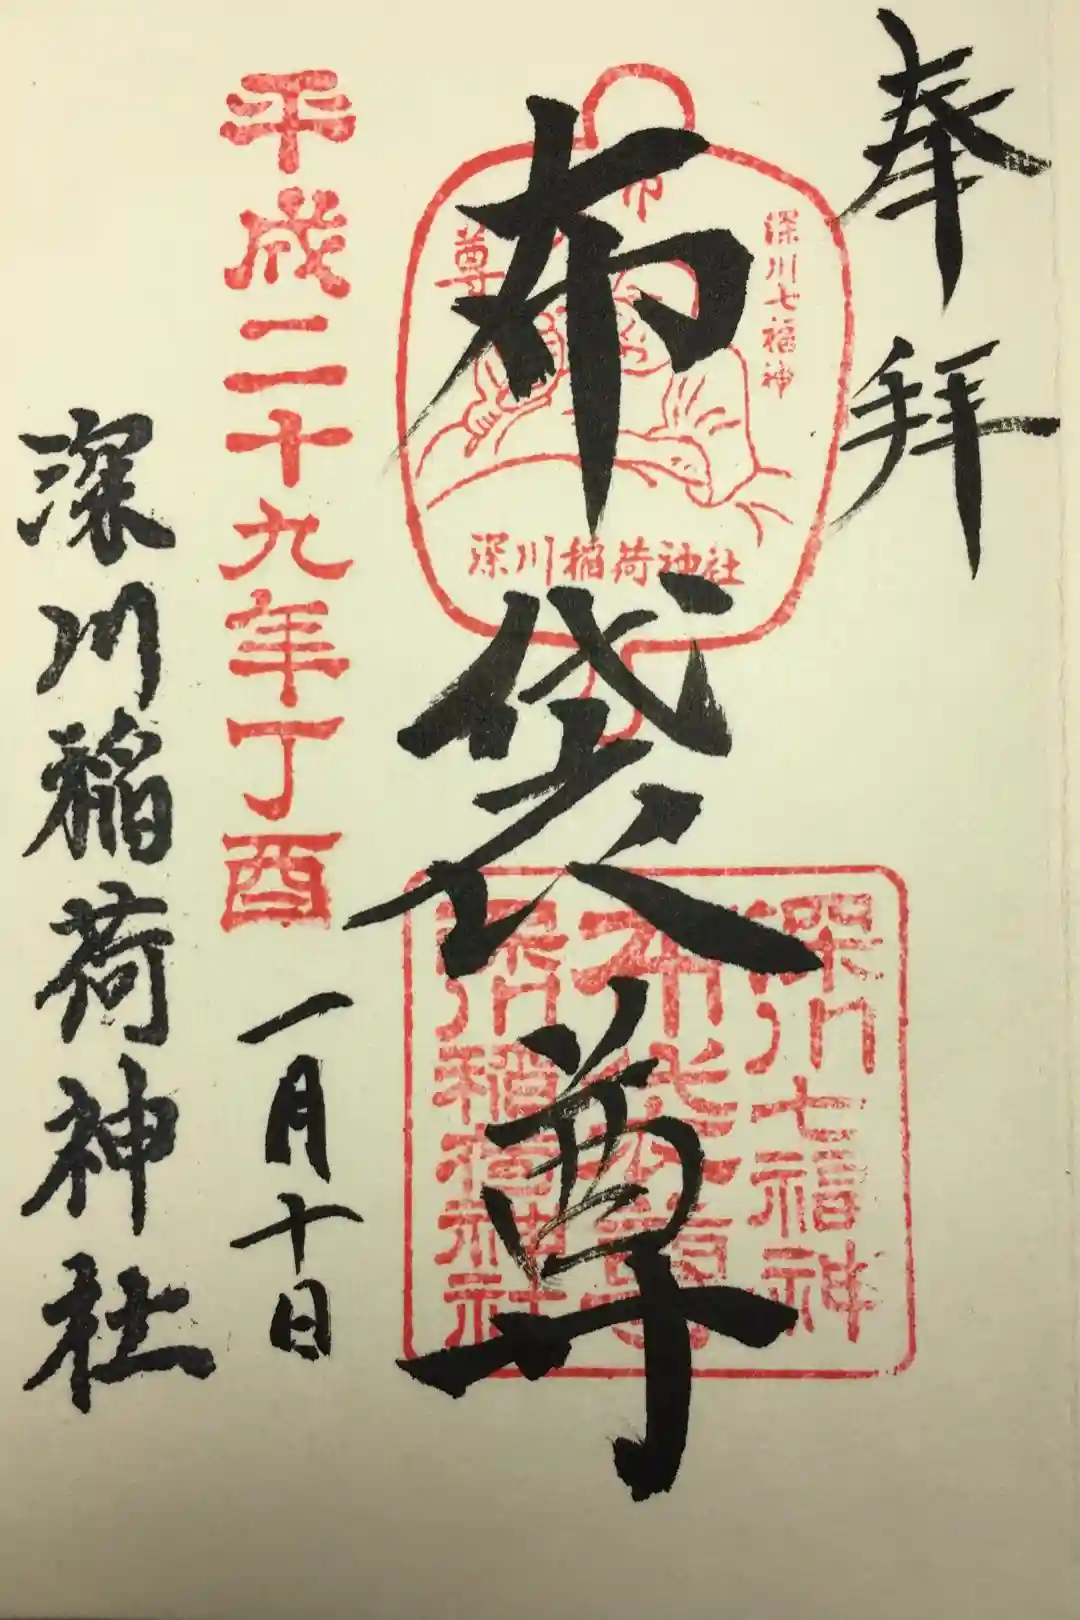 奉拝
深川七福神
布
尊
深川稲荷神社
布袋尊
深川七福神
布袋尊
深川稲荷神社
平成二十九年丁酉
一月十日
深川稲荷神社